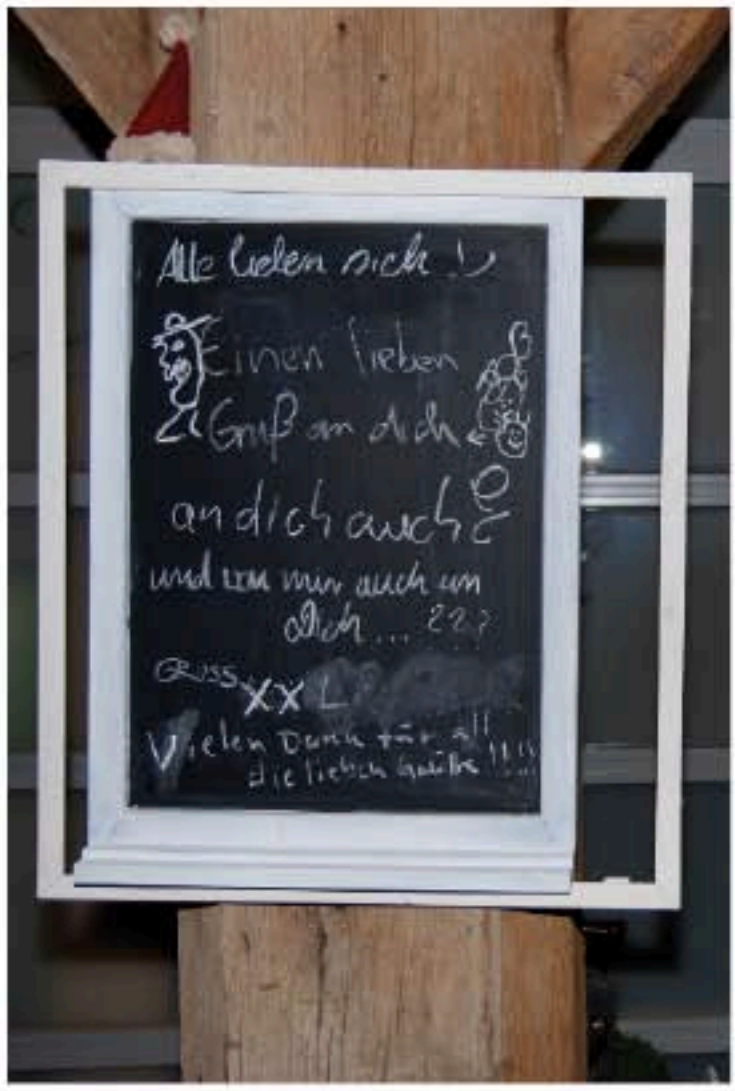 Alle lieben sich !
Einen lieben
Gruß an dich
an dich auch
und von mir auch an
Dich... ???
GRUSS XXL
Vielen Dank für all
die lieben Grüße !!!!